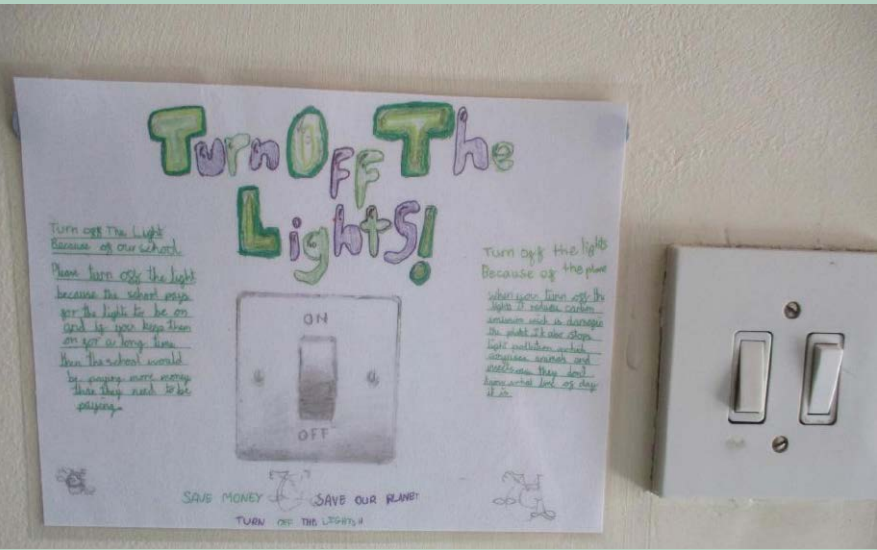 Turn Off The
Lights!
Turn off The Light
Because of our school
Please turn off the light
because the school pays
for the lights to be on
and if you keep them
on for a long time
then the school would
be paying more money
than they need to be
paying.
ON
OFF
Turn off the lights
Because of the plane
when you turn off the
lights it reduces carbon
emission wich is
the It also stops
light pollution
animals and
they dont
know what time of day
it is
SAVE MONEY SAVE OUR PLANET
TURN OFF THE LIGHTS